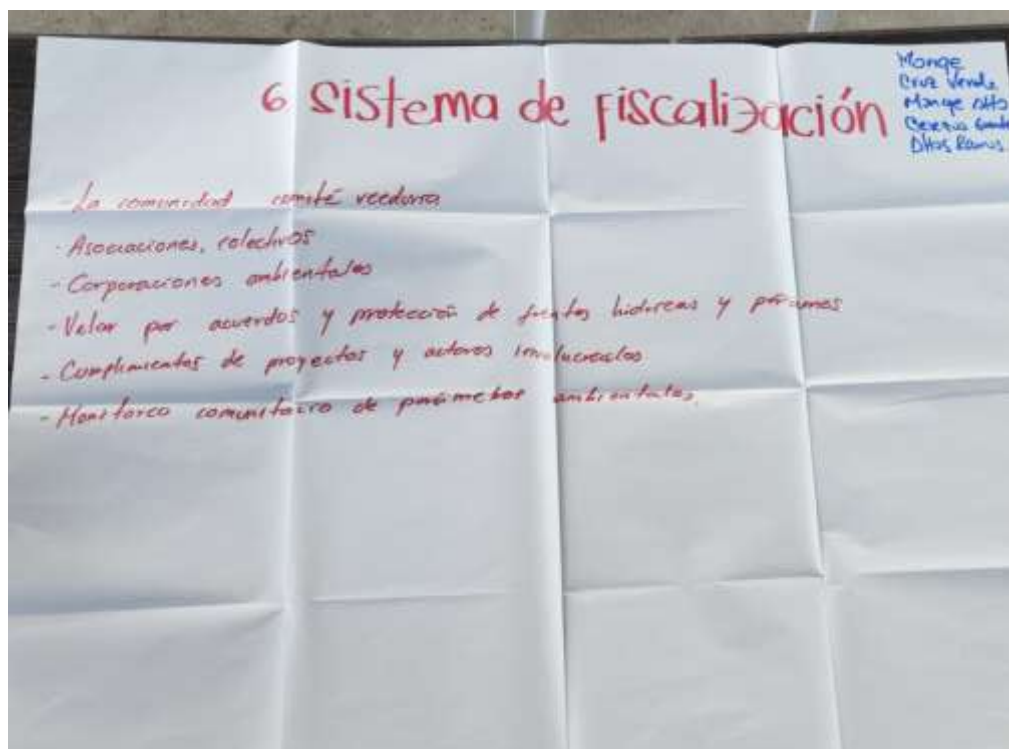 6 Sistema de fiscalización
Monge
Cruz Verde
Monge Alto
- La comunidad comité veeduria
- Asociaciones, colectivos
- Corporaciones ambientales
- Velar por acuerdos y protección de fuentes hidricas y páramos
- Cumplimientos de proyectos y actores involucrados
- Monitoreo comunitario de parámetros ambientales.